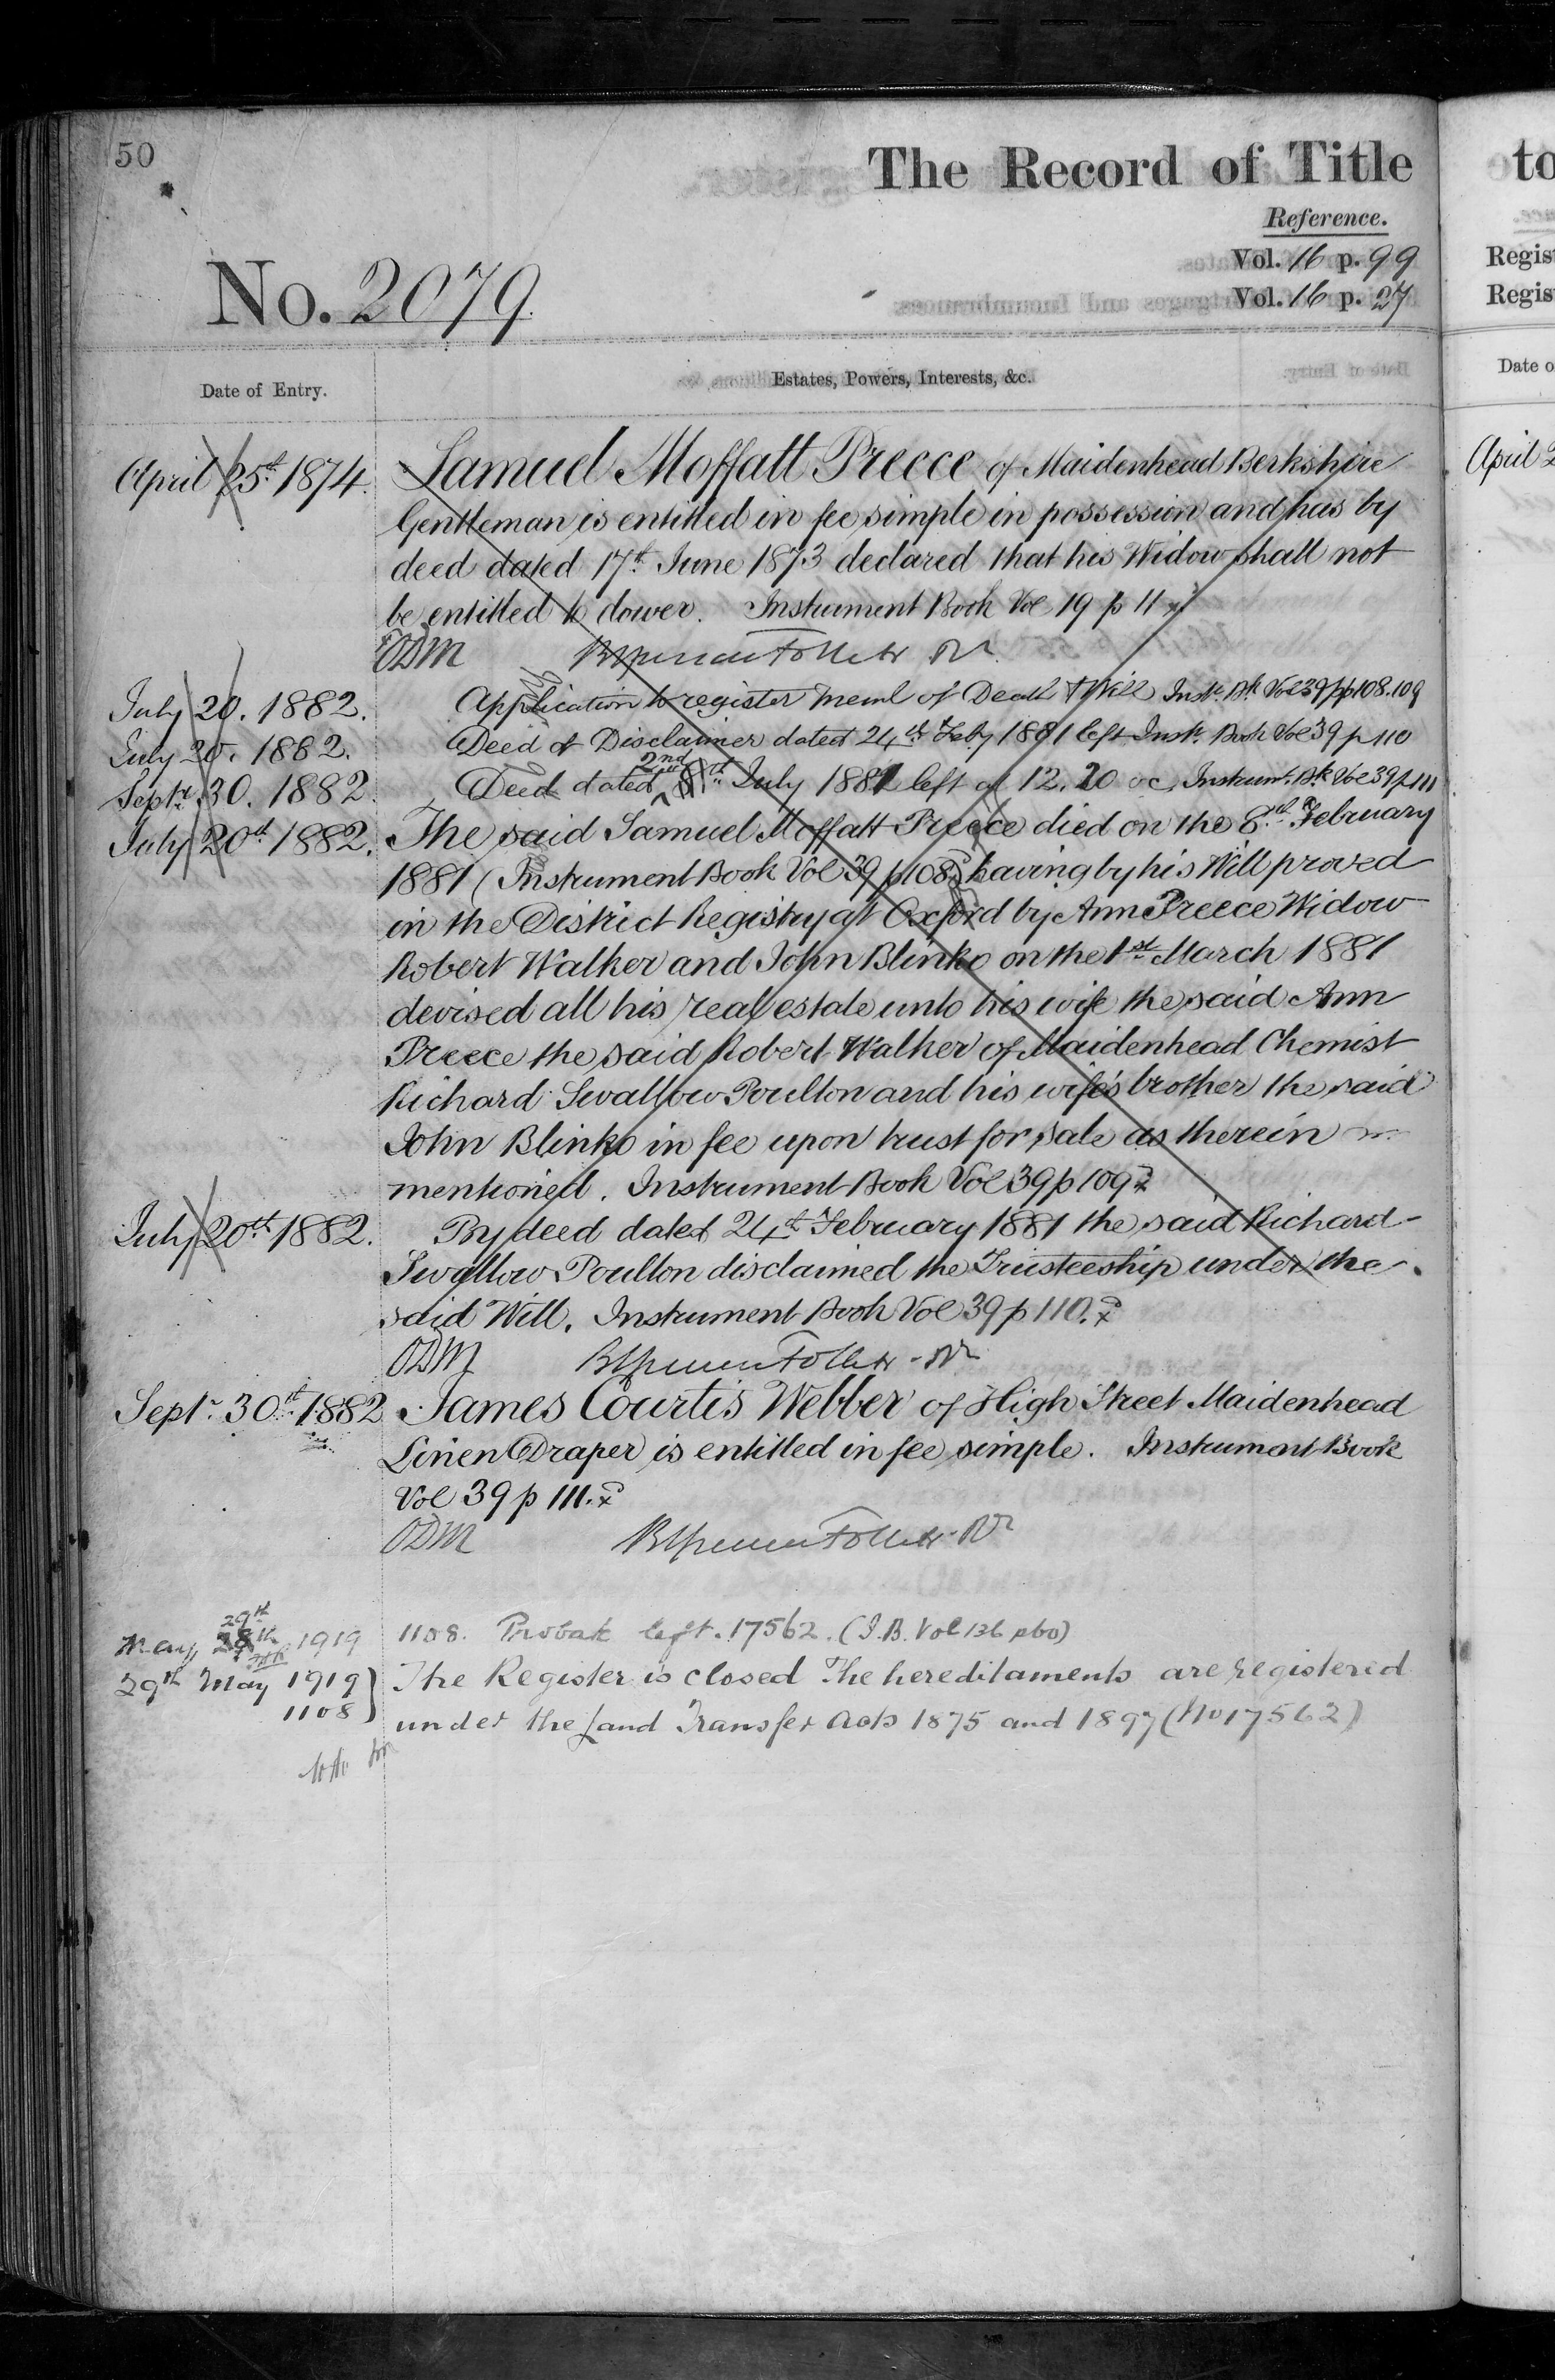 50
The Record of Title
Reference.
No. 2079.
Vol. 16 p. 99
Vol. 16 p. 27
Date of Entry.
Estates, Powers, Interests, &c.
April 25th 1874. Samuel Moffatt Preece of Maidenhead Berkshire
Gentleman is entitled in fee simple in possession and has by
deed dated 17th June 1873 declared that his Widow shall not
be entitled to dower. Instrument Book Vol 19 p 11
ODM
July 20. 1882. Application to register Meml of Death & Will Inst. Bk Vol 39 pp 108.109
July 20. 1882. Deed of Disclaimer dated 24th Feby 1881 left Instr. Book Vol 39 p 110
Septr 30. 1882. Deed dated 2nd July 1881 left at 12.20 oc, Instrumt. Bk Vol 39 p 111
July 20th 1882. The said Samuel Moffatt Preece died on the 8th February
1881 (Instrument Book Vol 39 p 108) having by his Will proved
in the District Registry at Oxford by Ann Preece Widow
Robert Walker and John Blinko on the 1st March 1881
devised all his real estate unto his wife the said Ann
Preece the said Robert Walker of Maidenhead Chemist
Richard Swallow Poulton and his wife's brother the said
John Blinko in fee upon trust for sale as therein
mentioned. Instrument Book Vol 39 p 109
July 20th 1882. By deed dated 24th February 1881 the said Richard
Swallow Poulton disclaimed the Trusteeship under the
said Will. Instrument Book Vol 39 p 110.
ODM
Septr 30th 1882 James Courtis Webber of High Street Maidenhead
Linen Draper is entitled in fee simple. Instrument Book
Vol 39 p 111.
ODM
May 29th 1919 1108. Probate left. 17562. (I.B. Vol 136 p60)
29th May 1919) The Register is closed The hereditaments are registered
1108) under the Land Transfer Acts 1875 and 1897 (No 17562)
to
Regist
Regis
Date o
April 2